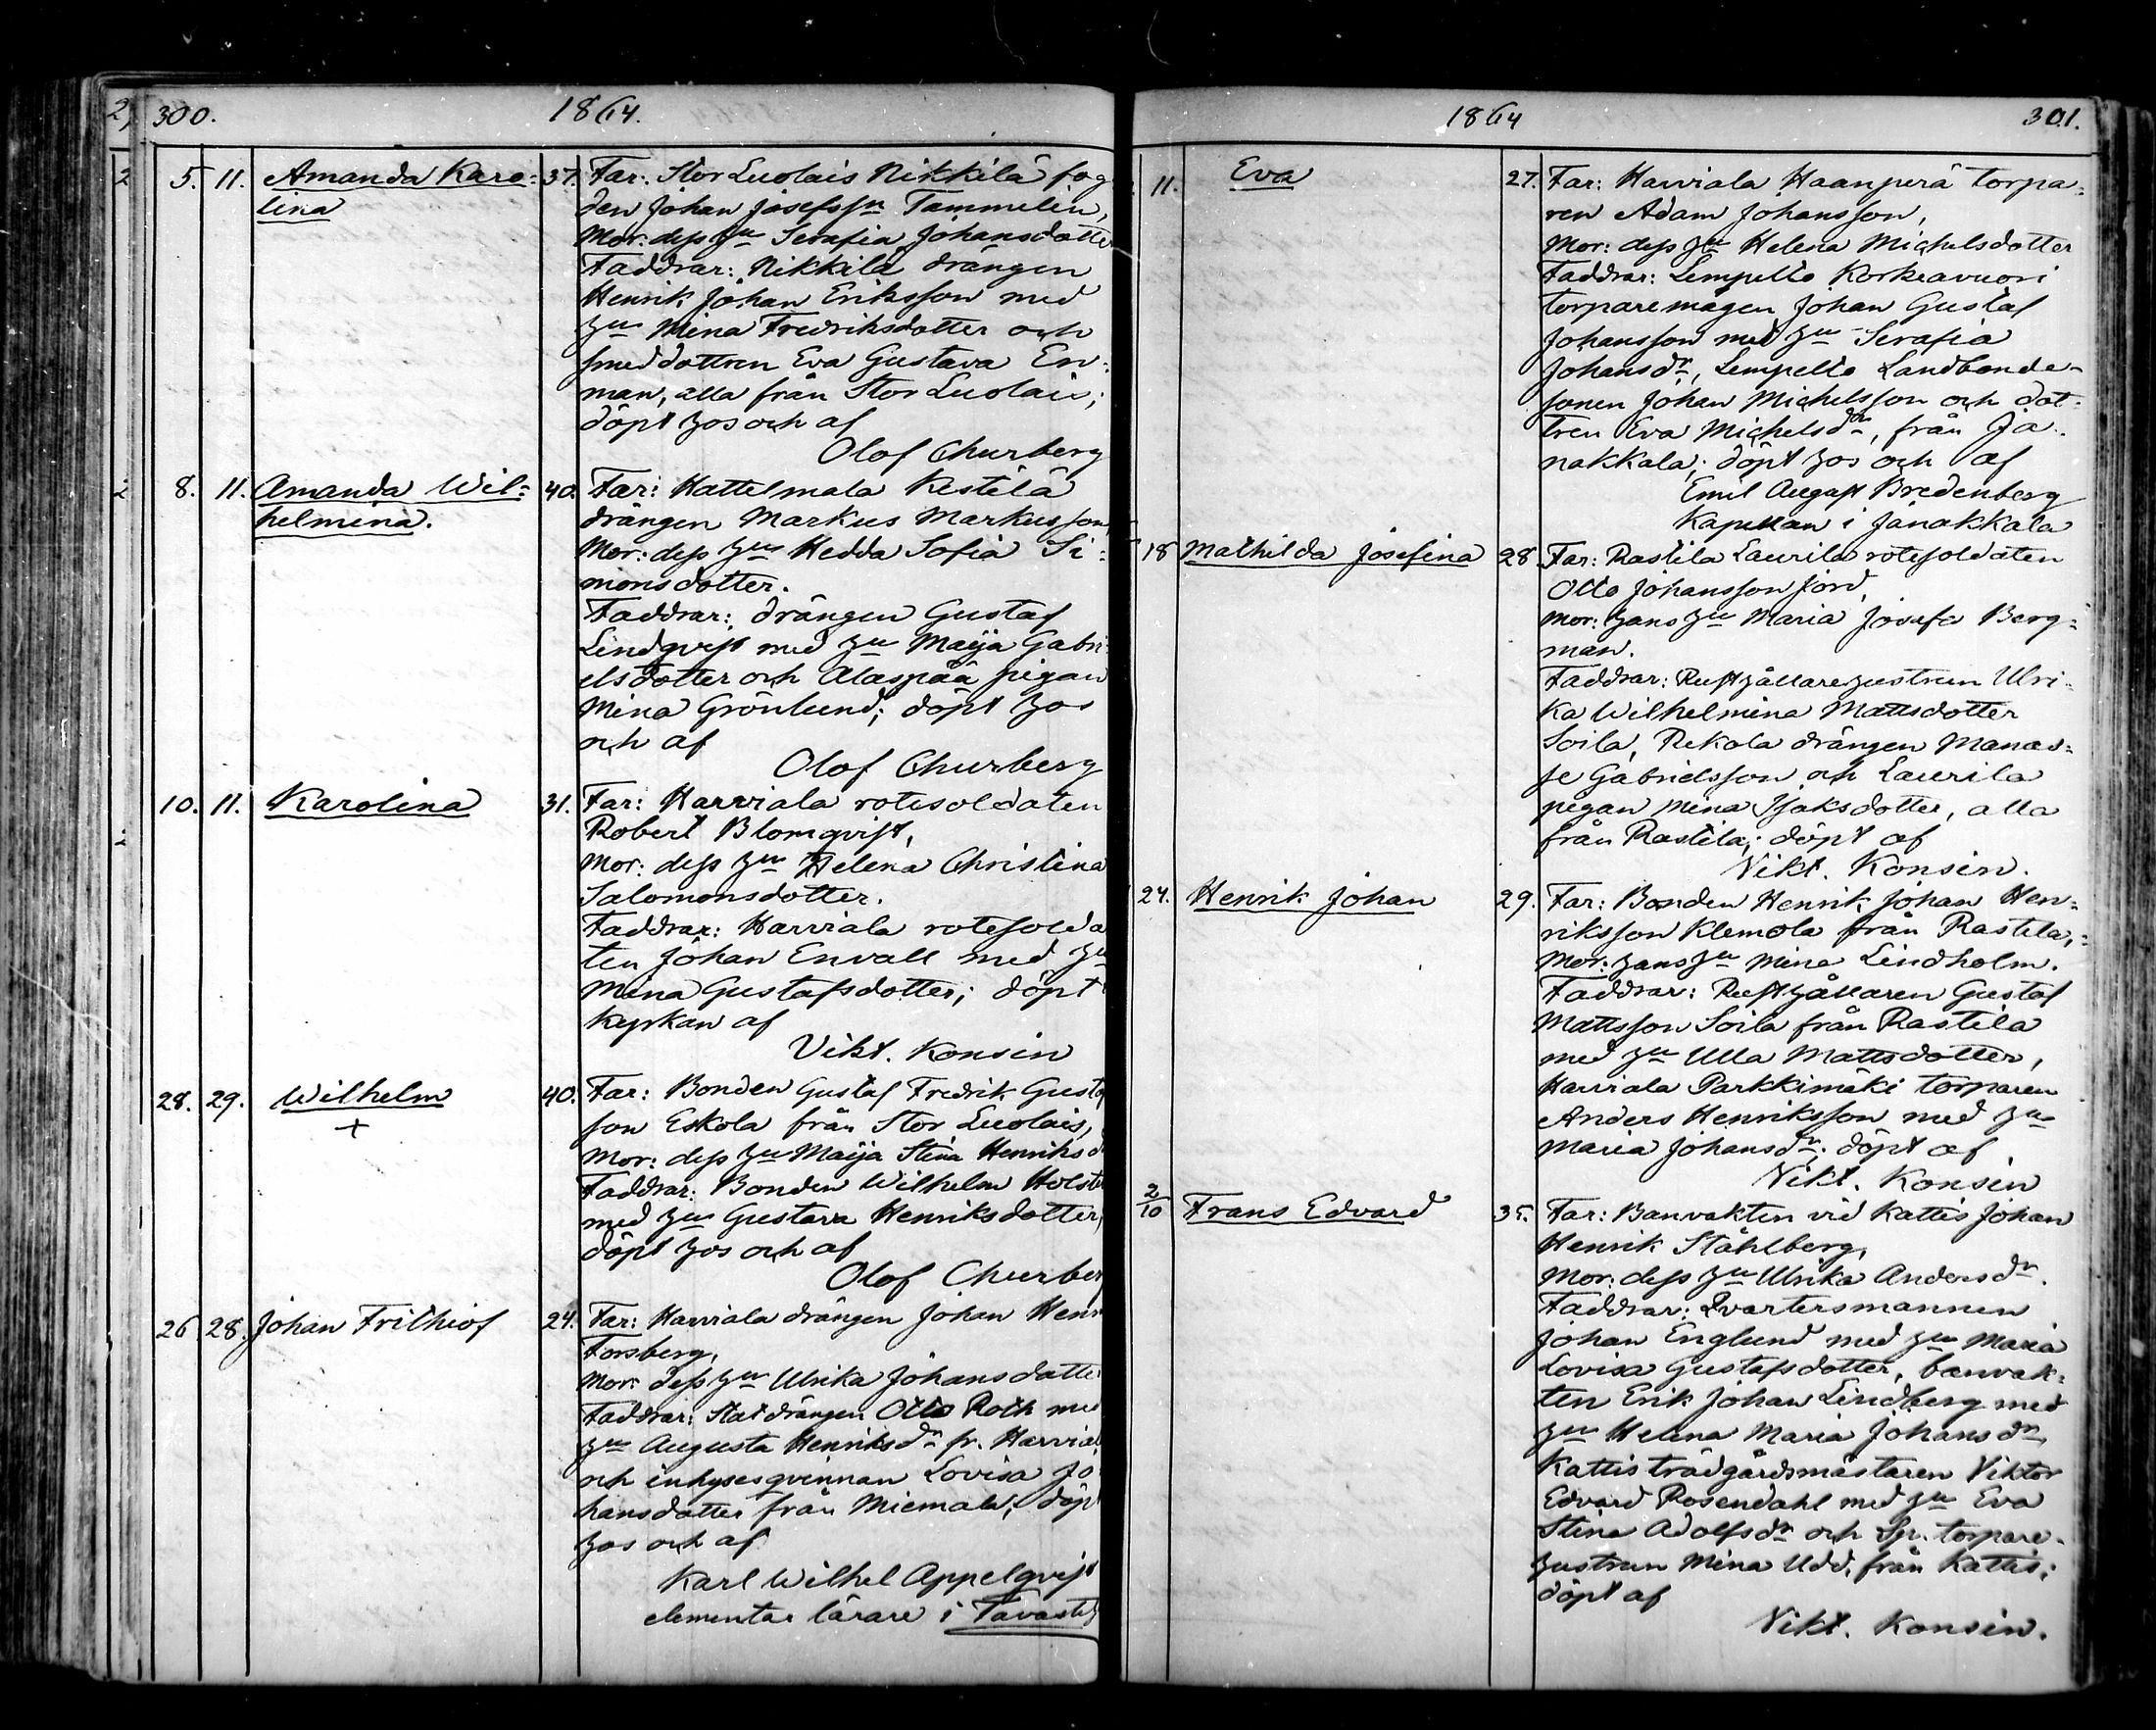 300. 1864.
5. 11. Amanda Karo- 37. Far: Stor Luolais Nikkilä fog
lina den Johan Josefsson Tammelin,
Mor: dess hu Serafia Johansdotter
Faddrar: Nikkilä drängen
Henrik Johan Eriksson med
hu Mina Fredriksdotter och
smeddottren Eva Gustava En-
man, alla från Stor Luolais;
döpt hos och af
Olof Churberg
8. 11. Amanda Wil- 40. Far: Hattelmala Kestilä
helmina. drängen Markus Markusson,
Mor: dess hu Hedda Sofia Si-
monsdotter.
Faddrar: drängen Gustaf
Lindqvist med hu Maija Gabri
elsdotter och Alaspää pigan
Mina Grönlund; döpt hos
och af
Olof Churberg
10. 11. Karolina 31. Far: Harviala rotesoldaten
Robert Blomqvist,
Mor: dess hu Helena Christina
Salomonsdotter.
Faddrar: Harviala rotesolda
ten Johan Envall med hu
Mina Gustafsdotter; döpt
kyrkan af
Vikt. Konsin
28. 29. Wilhelm 40. Far: Bonden Gustaf Fredrik Gustaf
+ son Eskola från Stor Luolais,
Mor: dess hu Maija Stina Henriksd
Faddrar: Bonden Wilhelm Holste
med hu Gustava Henriksdotter,
döpt hos och af
Olof Churber
26 28. Johan Frithiof 24. Far: Harviala drängen Johan Henr
Forsberg,
Mor: dess hu Ulrika Johansdotte
Faddrar: Statdrängen Otto Roth med
hu Augusta Henriksdr fr. Harvial
och inhysesqvinnan Lovisa Jo
hansdotter från Miemala; döpt
hos och af
Karl Wilhel Appelqvist
elementar lärare i Tavasteh
1864 301.
11. Eva 27. Far: Harviala Haanperä torpa-
ren Adam Johansson,
Mor: dess hu Helena Michelsdotter
Faddrar: Lempello Korkeavuori
torparemagen Johan Gustaf
Johansson med hu Serafia
Johansdr, Lempello Landbonde-
sonen Johan Michelsson och dot-
tren Eva Michelsdr, från Ja-
nakkala; döpt hos och af
Emil August Bredenberg
Kapellan i Janakkala
18 Mathilda Josefina 28 Far: Rastila Laurila rotesoldaten
Otto Johansson Jord,
Mor: hans hu Maria Josefa Berg-
man.
Faddrar: Rusthållarehustrun Ulri-
ka Wilhelmina Mattsdotter
Soila, Rekola drängen Manas-
se Gabrielsson och Laurila
pigan Mina Isaksdotter, alla
från Rastila; döpt af
Vikt. Konsin.
24. Henrik Johan 29. Far: Bonden Henrik Johan Hen-
riksson Klemola från Rastila,
Mor: hans hu Mina Lindholm.
Faddrar: Rusthållaren Gustaf
Mattsson Soila från Rastila
med hu Ulla Mattsdotter,
Harviala Parkkimäki torparen
Anders Henriksson med hu
Maria Johansdr. döpt af
Vikt. Konsin
2/10 Frans Edvard 35. Far: Banvakten vid Kattis Johan
Henrik Ståhlberg,
Mor: dess hu Ulrika Andersdr.
Faddrar: Qvartersmannen
Johan Englund med hu Maria
Lovisa Gustafsdotter, banvak-
ten Erik Johan Lindberg med
hu Helena Maria Johansdr,
Kattis trädgårdsmästaren Viktor
Edvard Rosendahl med hu Eva
Stina Adolfsdr och torpare-
hustrun Mina Udd, från Kattis;
döpt af
Vikt. Konsin.